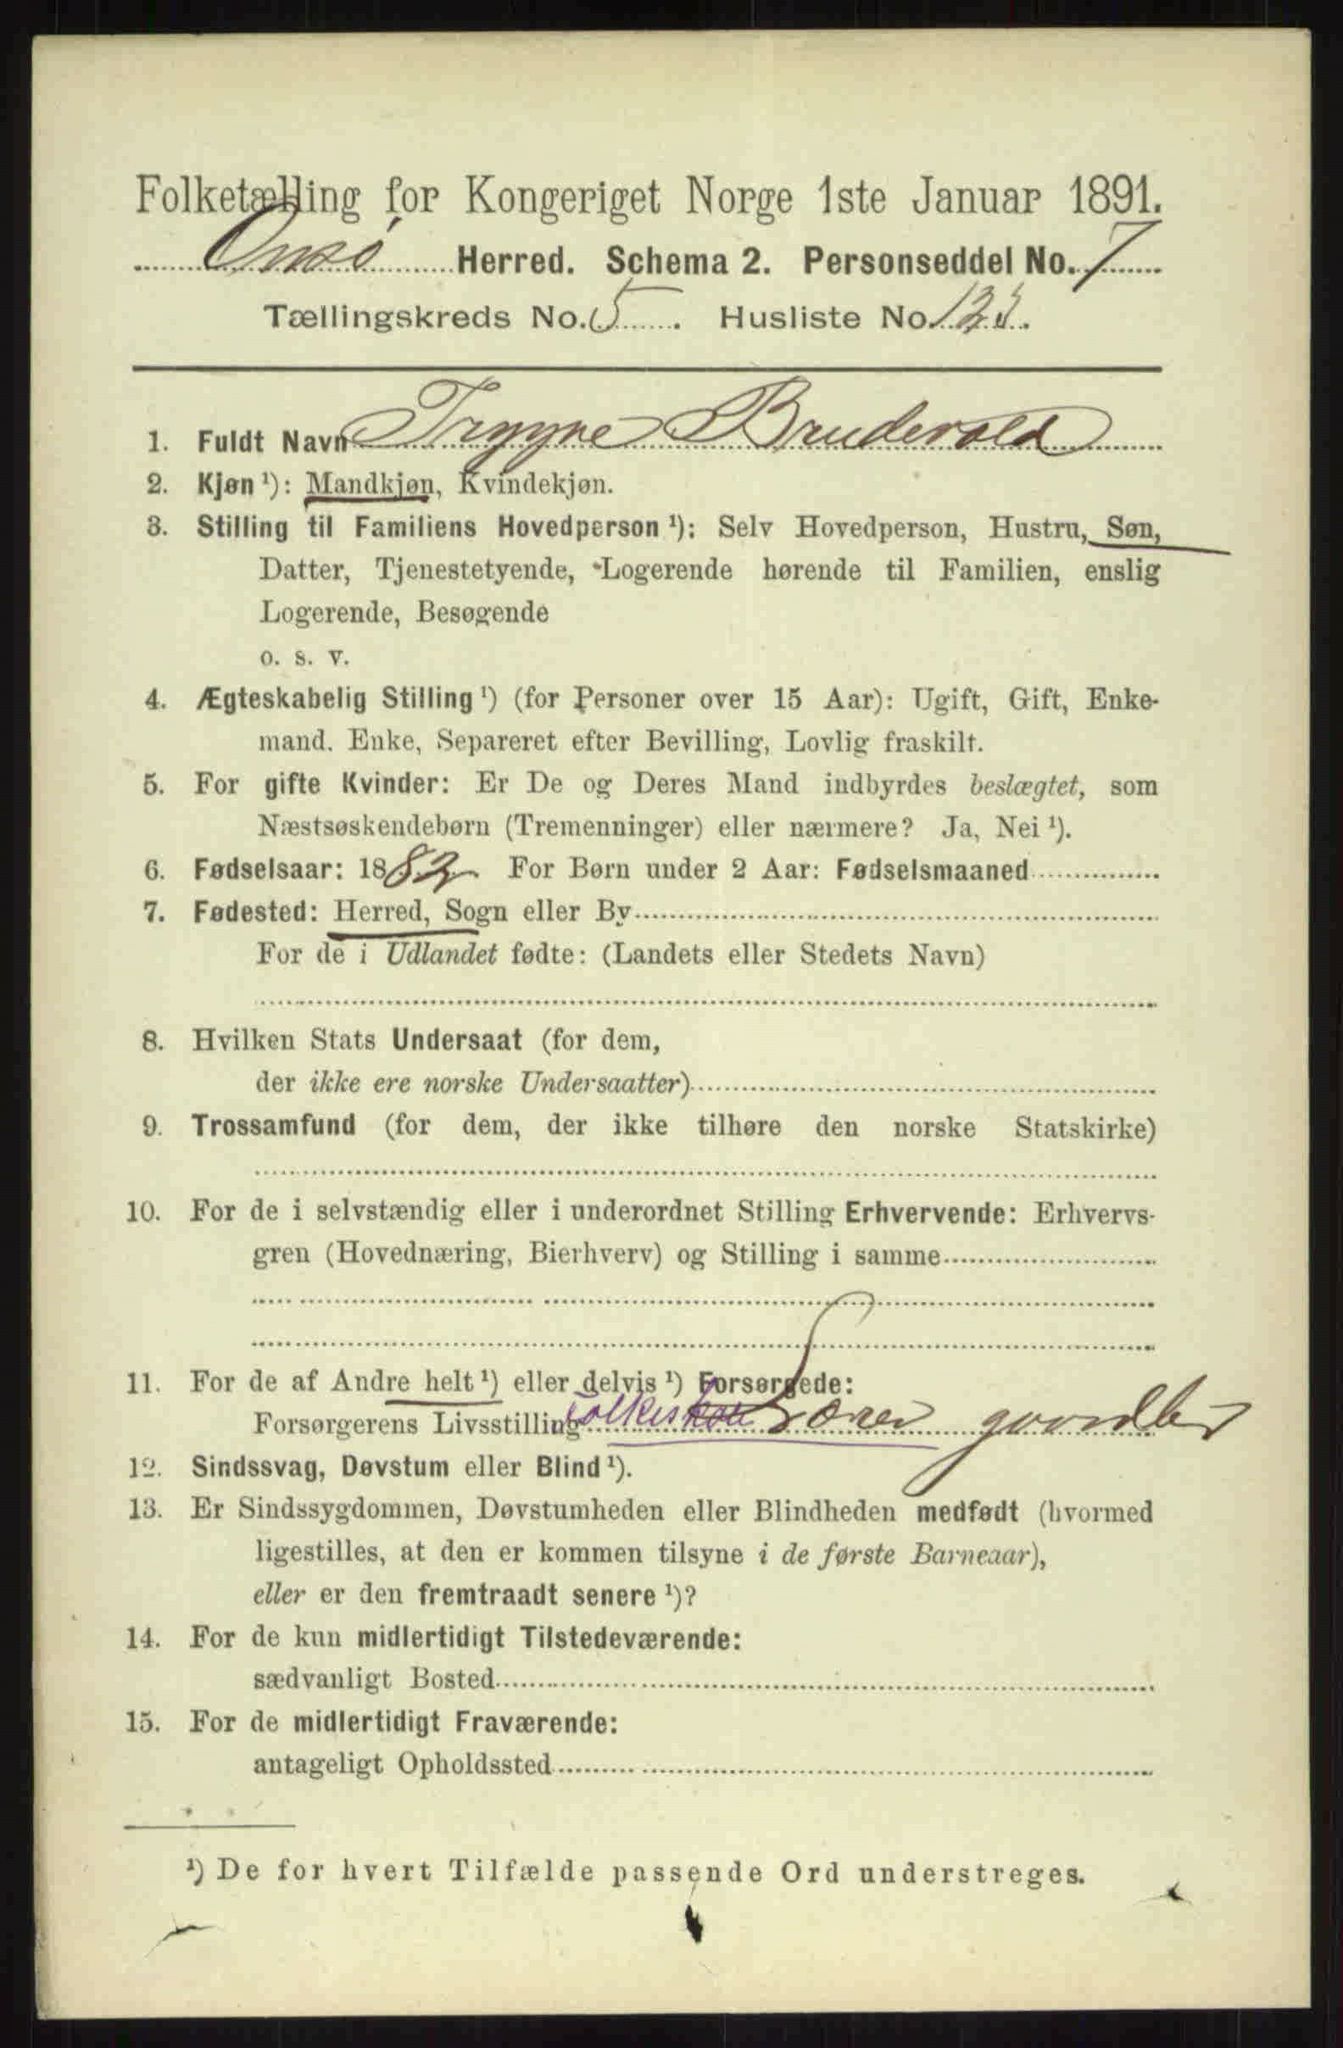 Folketælling for Kongeriget Norge 1ste Januar 1891.
Onsø Herred. Schema 2. Personseddel No. 7
Tællingskreds No. 5. Husliste No. 123.
1. Fuldt Navn Trygve Brudevold
2. Kjøn ¹): Mandkjøn, Kvindekjøn.
3. Stilling til Familiens Hovedperson ¹): Selv Hovedperson, Hustru, Søn,
Datter, Tjenestetyende, Logerende hørende til Familien, enslig
Logerende, Besøgende
o. s. v.
4. Ægteskabelig Stilling ¹) (for Personer over 15 Aar): Ugift, Gift, Enke-
mand. Enke, Separeret efter Bevilling, Lovlig fraskilt.
5. For gifte Kvinder: Er De og Deres Mand indbyrdes beslægtet, som
Næstsøskendebørn (Tremenninger) eller nærmere? Ja, Nei ¹).
6. Fødselsaar: 1882 For Børn under 2 Aar: Fødselsmaaned
7. Fødested: Herred, Sogn eller By
For de i Udlandet fødte: (Landets eller Stedets Navn)
8. Hvilken Stats Undersaat (for dem,
der ikke ere norske Undersaatter)
9. Trossamfund (for dem, der ikke tilhøre den norske Statskirke)
10. For de i selvstændig eller i underordnet Stilling Erhvervende: Erhvervs-
gren (Hovednæring, Bierhverv) og Stilling i samme
11. For de af Andre helt ¹) eller delvis ¹) Forsørgede:
Forsørgerens Livsstilling Folkesko Lærer gaardbr
12. Sindssvag, Døvstum eller Blind ¹).
13. Er Sindssygdommen, Døvstumheden eller Blindheden medfødt (hvormed
ligestilles, at den er kommen tilsyne i de første Barneaar),
eller er den fremtraadt senere ¹)?
14. For de kun midlertidigt Tilstedeværende:
sædvanligt Bosted
15. For de midlertidigt Fraværende:
antageligt Opholdssted
¹) De for hvert Tilfælde passende Ord understreges.